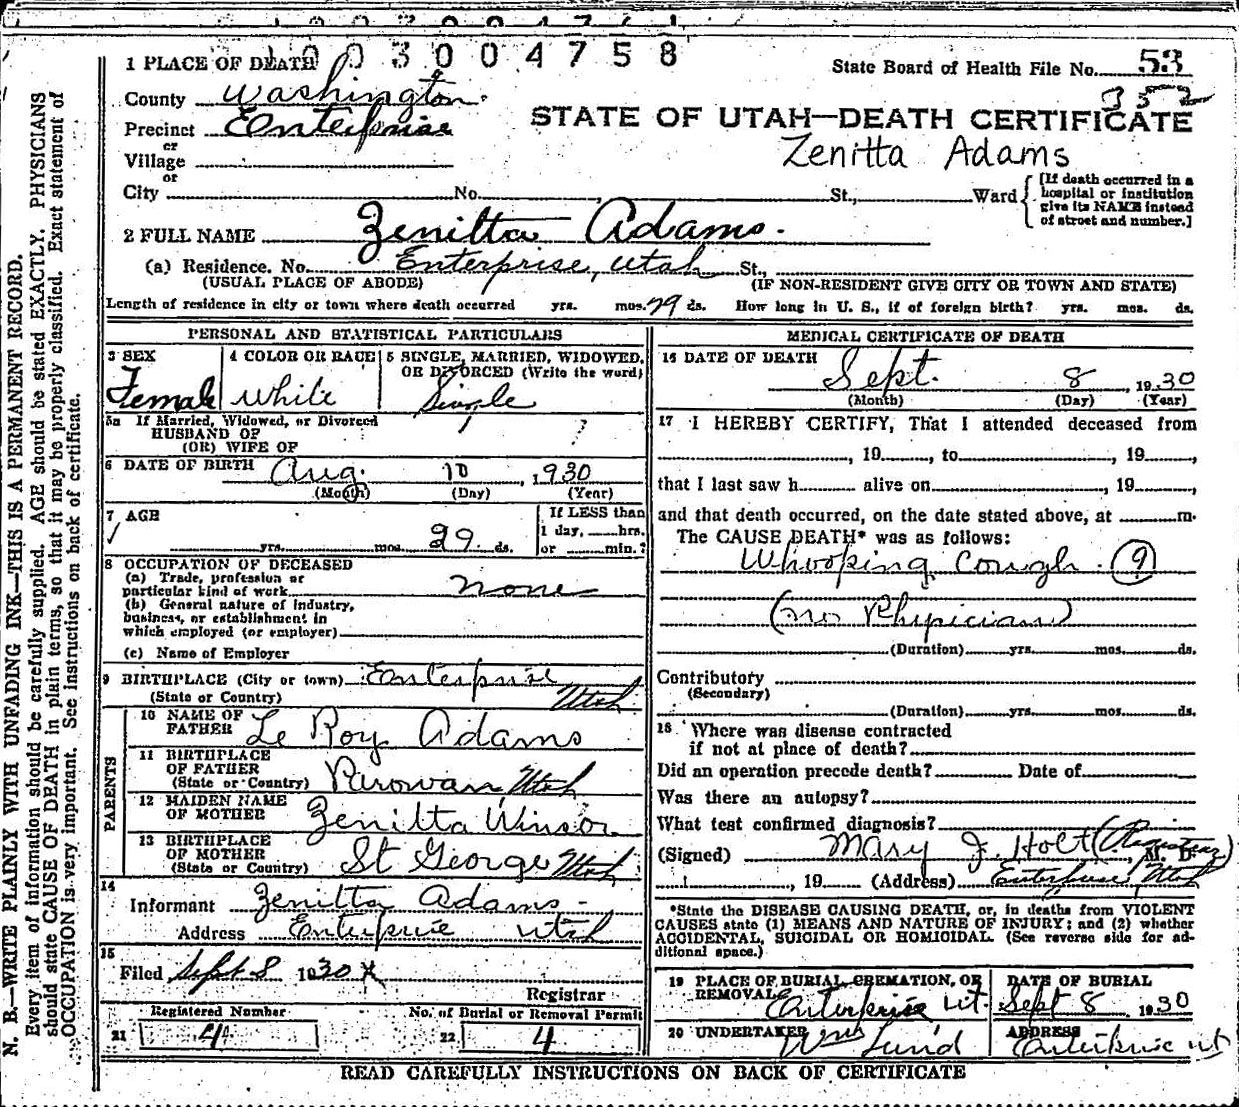 1003004758
1 PLACE OF DEATH
State Board of Health File No. 53
352
County Washington.
Precinct Enterprise
or
Village
or
City No. St., Ward
STATE OF UTAH—DEATH CERTIFICATE
Zenitta Adams
[If death occurred in a
hospital or institution
give its NAME instead
of street and number.]
2 FULL NAME Zenitta Adams.
(a) Residence. No. Enterprise, Utah St.,
(USUAL PLACE OF ABODE) (IF NON-RESIDENT GIVE CITY OR TOWN AND STATE)
Length of residence in city or town where death occurred yrs. mos. 29 ds. How long in U. S., if of foreign birth? yrs. mos. ds.
PERSONAL AND STATISTICAL PARTICULARS
3 SEX
Female
4 COLOR OR RACE
White
5 SINGLE, MARRIED, WIDOWED,
OR DIVORCED (Write the word)
Single
5a If Married, Widowed, or Divorced
HUSBAND OF
(OR) WIFE OF
?
6 DATE OF BIRTH Aug. 10, 1930
(Month) (Day) (Year)
7 AGE
yrs. mos. 29 ds.
If LESS than
1 day, hrs.
or min.?
8 OCCUPATION OF DECEASED
(a) Trade, profession or
particular kind of work none
(b) General nature of Industry,
business, or establishment in
which employed (or employer)
(c) Name of Employer
9 BIRTHPLACE (City or town) Enterprise
(State or Country) Utah
PARENTS
10 NAME OF
FATHER Le Roy Adams
11 BIRTHPLACE
OF FATHER
(State or Country) Parowan, Utah
12 MAIDEN NAME
OF MOTHER Zenitta Winsor
13 BIRTHPLACE
OF MOTHER
(State or Country) St George Utah
14
Informant Zenitta Adams -
Address Enterprise Utah
15
Filed Sept 8 1930
Registrar
Registered Number
21 4
No. of Burial or Removal Permit
22 4
MEDICAL CERTIFICATE OF DEATH
16 DATE OF DEATH
Sept. 8, 1930
(Month) (Day) (Year)
17 I HEREBY CERTIFY, That I attended deceased from
, 19 , to , 19 ,
that I last saw h alive on , 19
and that death occurred, on the date stated above, at m.
The CAUSE DEATH* was as follows:
Whooping Cough. 9
(no Physician)
(Duration) yrs. mos. ds.
Contributory
(Secondary)
(Duration) yrs. mos. ds.
18 Where was disease contracted
if not at place of death?
Did an operation precede death? Date of
Was there an autopsy?
What test confirmed diagnosis?
(Signed) Mary J. Holt (Registrar) M. D.
, 19 (Address) Enterprise, Utah
*State the DISEASE CAUSING DEATH, or, in deaths from VIOLENT
CAUSES state (1) MEANS AND NATURE OF INJURY; and (2) whether
ACCIDENTAL, SUICIDAL OR HOMICIDAL. (See reverse side for ad-
ditional space.)
19 PLACE OF BURIAL, CREMATION, OR
REMOVAL Enterprise Ut.
DATE OF BURIAL
Sept 8 1930
20 UNDERTAKER
Wm Lund
ADDRESS
Enterprise Ut
READ CAREFULLY INSTRUCTIONS ON BACK OF CERTIFICATE
N. B.—WRITE PLAINLY WITH UNFADING INK—THIS IS A PERMANENT RECORD.
Every item of information should be carefully supplied. AGE should be stated EXACTLY. PHYSICIANS
should state CAUSE OF DEATH in plain terms, so that it may be properly classified. Exact statement of
OCCUPATION is very important. See instructions on back of certificate.